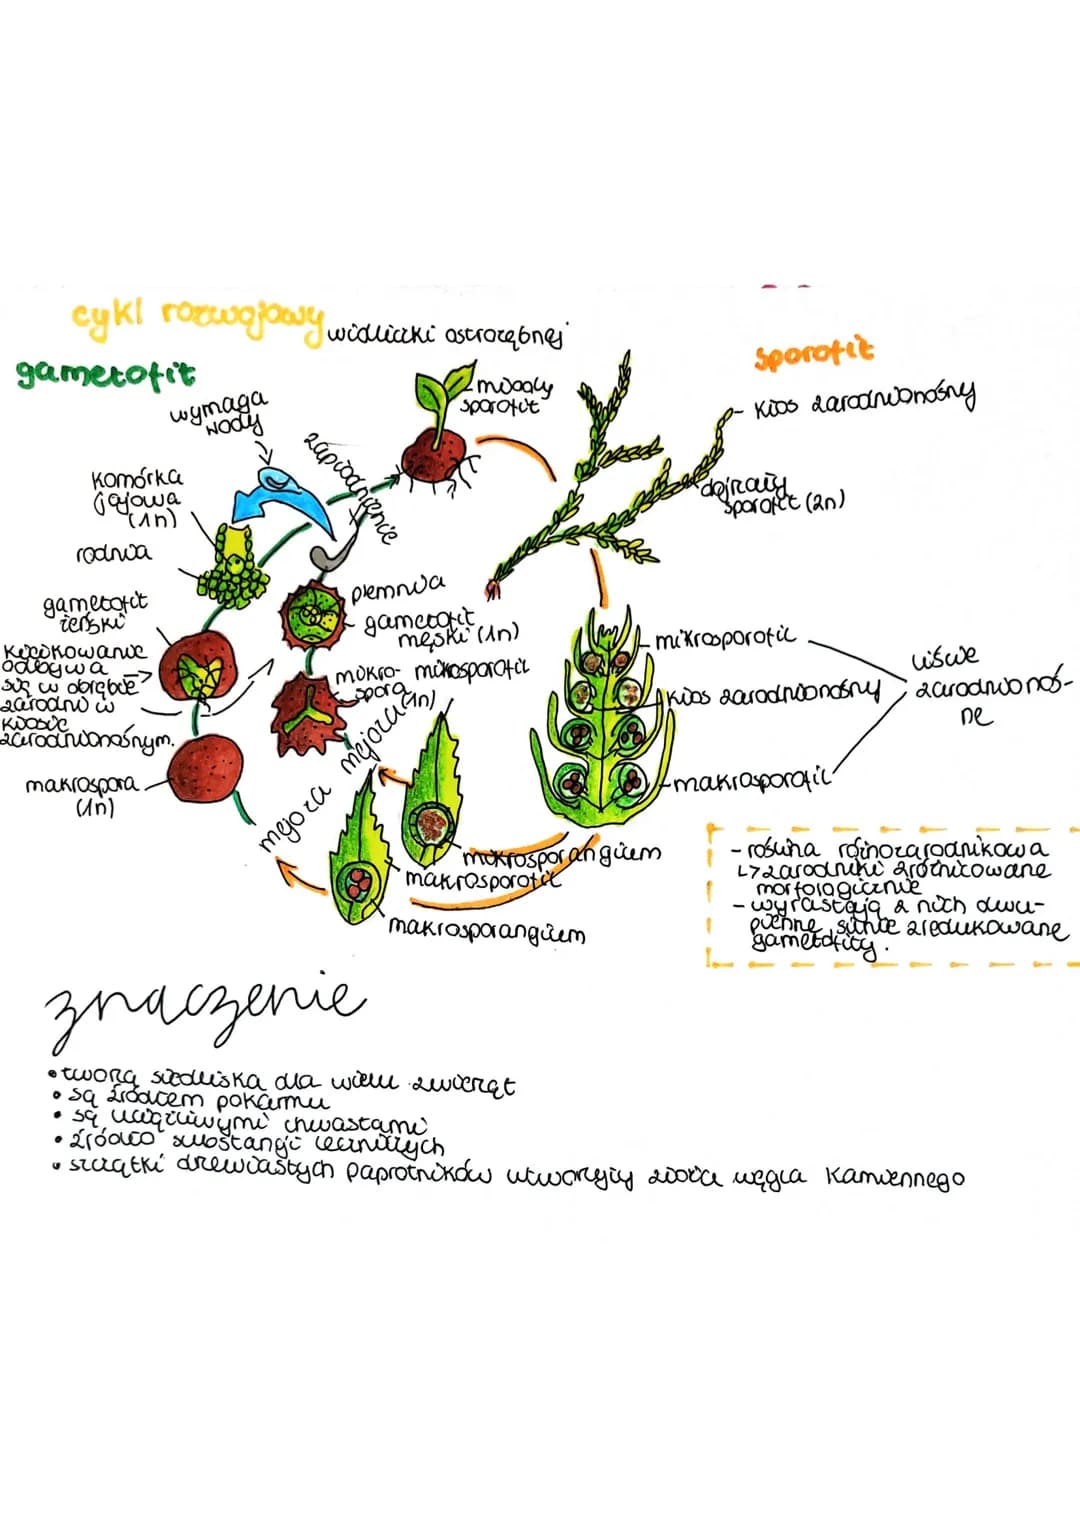 cykl rozwojowy widliczki ostrozębnej
gametofit
sporofit
wymaga
wody
zapłodnienie
młody
sporofit
kłos zarodnionośny
dojrzały
sporofit (2n)
komórka
jajowa
(1n)
rodnia
gametofit
żeński
kiełkowanie
odbywa
się w obrębie
zarodni w
kłosie
zarodnionośnym.
makrospora
(1n)
plemnia
gametofit
męski (1n)
mikro-
spora
(1n)
mikrosporofil
mejoza
mejoza
mikrosporangium
makrosporofil
makrosporangium
mikrosporofil
kłos zarodnionośny
makrosporofil
liście
zarodnionoś-
ne
- roślina różnozarodnikowa
↳ zarodniki zróżnicowane
morfologicznie
- wyrastają z nich dwu-
pienne, silnie zredukowane
gametofity.
znaczenie
• tworzą siedliska dla wielu zwierząt
• są źródłem pokarmu
• są uciążliwymi chwastami
• źródło substancji leczniczych
• szczątki drewniastych paprotników utworzyły złoża węgla kamiennego